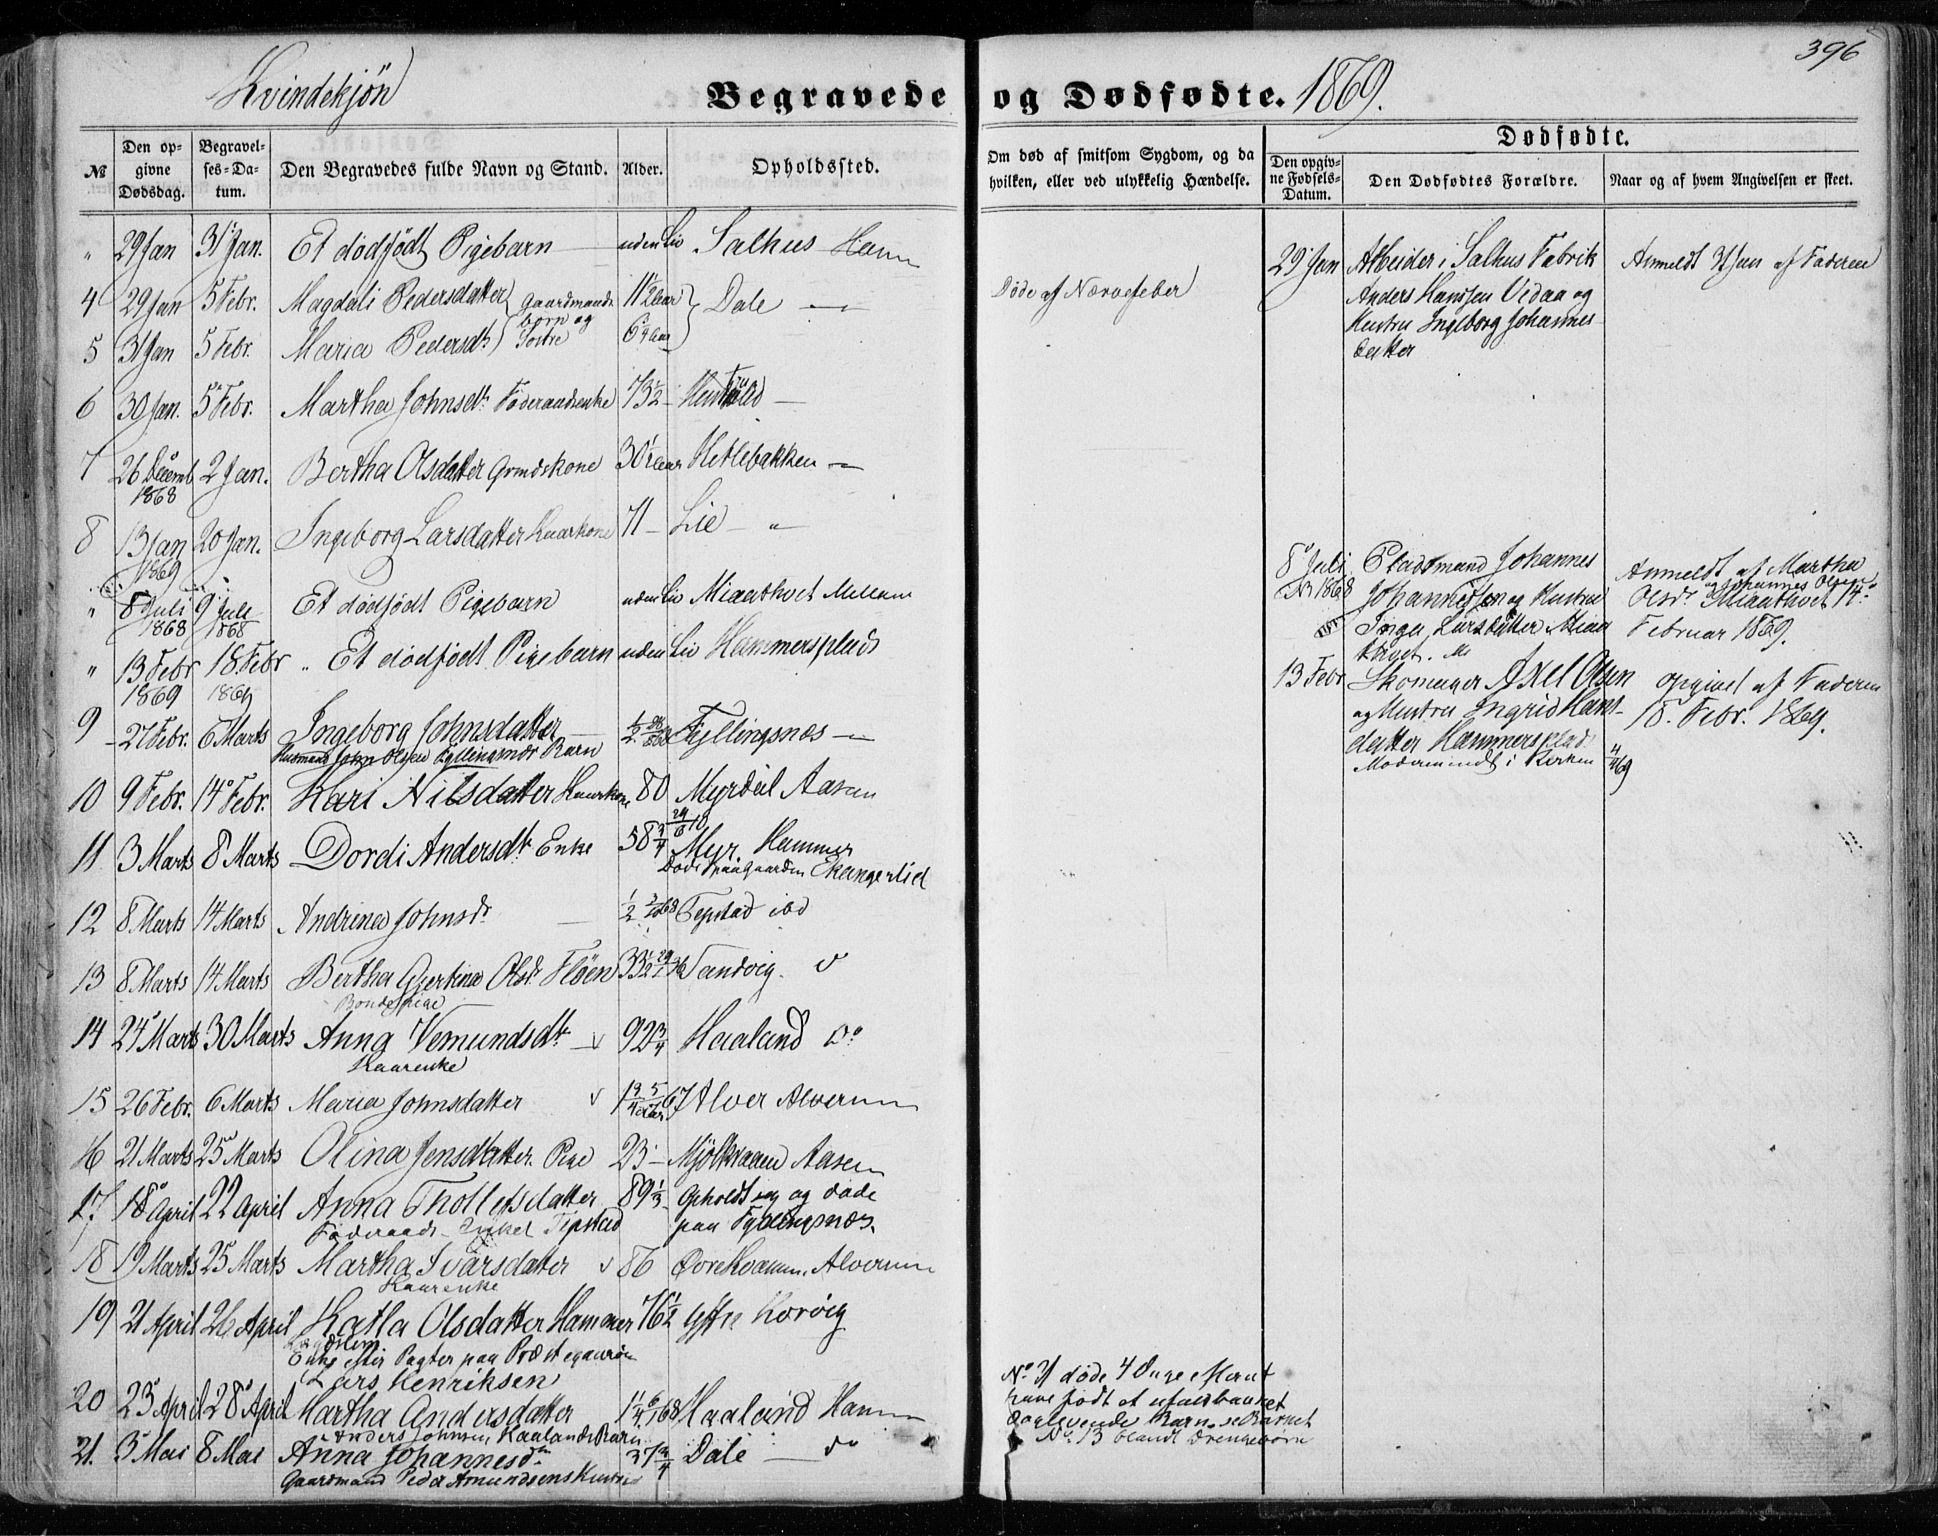 396
Kvindekjön
Begravede og Dødfødte. 1869.
№
Den opgivne Dødsdag.
Begravelses-Datum.
Den Begravedes fulde Navn og Stand.
Alder.
Opholdssted.
Om død af smitsom Sygdom, og da hvilken, eller ved ulykkelig Hændelse.
Dødfødte.
Den opgivne Fødsels-Datum.
Den Dødfødtes Forældre.
Naar og af hvem Angivelsen er skeet.
" 29 Jan 31 Jan. Et dödfödt Pigebarn uden Liv Salhus Ham
4 29 Jan 5 Febr. Magdali Pedersdatter 11 1/2 aar Dale —
Gaardmands born og Sostre
5 31 Jan 5 Febr. Maria Pedersdt
6 30 Jan. 5 Febr. Martha Johnsdr. Föderaadsenke 73 1/2 —
7 26 Decemb 1868 2 Jan. Bertha Olsdatter Grmdskone 30 1/2 aar Hetlebakken —
8 13 Jan 1869 20 Jan. Ingeborg Larsdatter Kaarkone 71 — Lie — "
" 8 Juli 1868 9 Juli 1868 Et dödfödt Pigebarn uden Liv Miaatvet Mellem
" 13 Febr 1869 18. Febr 1869 " Et dödfödt Pigebarn uden Liv Hammersplads
9 27 Febr. 6 Marts Ingeborg Johnsdatter — 1/2 Fyllingsnæs —
Husmand John Olsen Fyllingsnæs Barn
10 9 Febr. 14 Febr. Kari Nilsdatter Kaarkone 80 Myrdal Aasem
11 3 Marts 8 Marts Dordi Andersdt. Enke 58 3/4 Myr. Hammer
Döde paa gaarden Ekangerlid
12 8 Marts 14 Marts Andrina Johnsdr 1/2 Tepstad ibd
13 8 Marts 14 Marts Bertha Gjertina Olsdr. Flöen 33 1/2 Sandvig. v
Bondepige
14 24 Marts 30 Marts Anna Vemundsdt. v 92 3/4 Haaland do
Kaarenke
15 26 Febr. 6 Marts Maria Johnsdatter v 1 3/4 aar 67 Alver Alverem
16 21 Marts 25 Marts Olina Jensdatter Pige 23 — Mjölkvaam Aasem
17 18 April 22 April Anna Thollefsdatter 89 1/3 Opholdt seg og døde
Föderaads Enke Tepstad paa Fyllingsnæs.
18 19 Marts 25 Marts Martha Ivarsdatter v 86 Øvre Kvamme. Alverem
Kaarenke
19 21 April 26 April Katla Olsdatter Hammer 76 1/2
Enke efter Pagter paa Præstegaarden
Lars Henriksen
20 23 April 28 April Martha Andersdatter 1 1/4 Haaland Ham
Anders Johnsen Haalands Barn
21. 3 Mai 8 Mai Anna Johannesdtr 37 3/4 Dale — do
Gaardmand Peder Amundsens Hustru
Døde af Nervefeber
29 Jan Arbeider i Salhus Fabrik
Anders Hanssen Vedaa og
Hustru Ingeborg Johannes-
datter
Anmeldt 31 Jan af Faderen
8 Juli 1868 Pladsmand Johannes
Johannessen og Hustru
Inga Larsdatter Miaa
tvet.
Anmeldt af Martha
Olsdr. og Johannes Olsen
Miaatvet 14
Februar 1869.
13 Febr Skomager Axel Olsen
og Hustru Ingrid Hans-
datter Hammersplads
Moder i Kirken 4/4 69
opgivet af Faderen
18. Febr. 1869.
No 21 døde 4 Dage efter at
have født et
levende Barn. se Barnet
No. 13 blandt Drengebørn